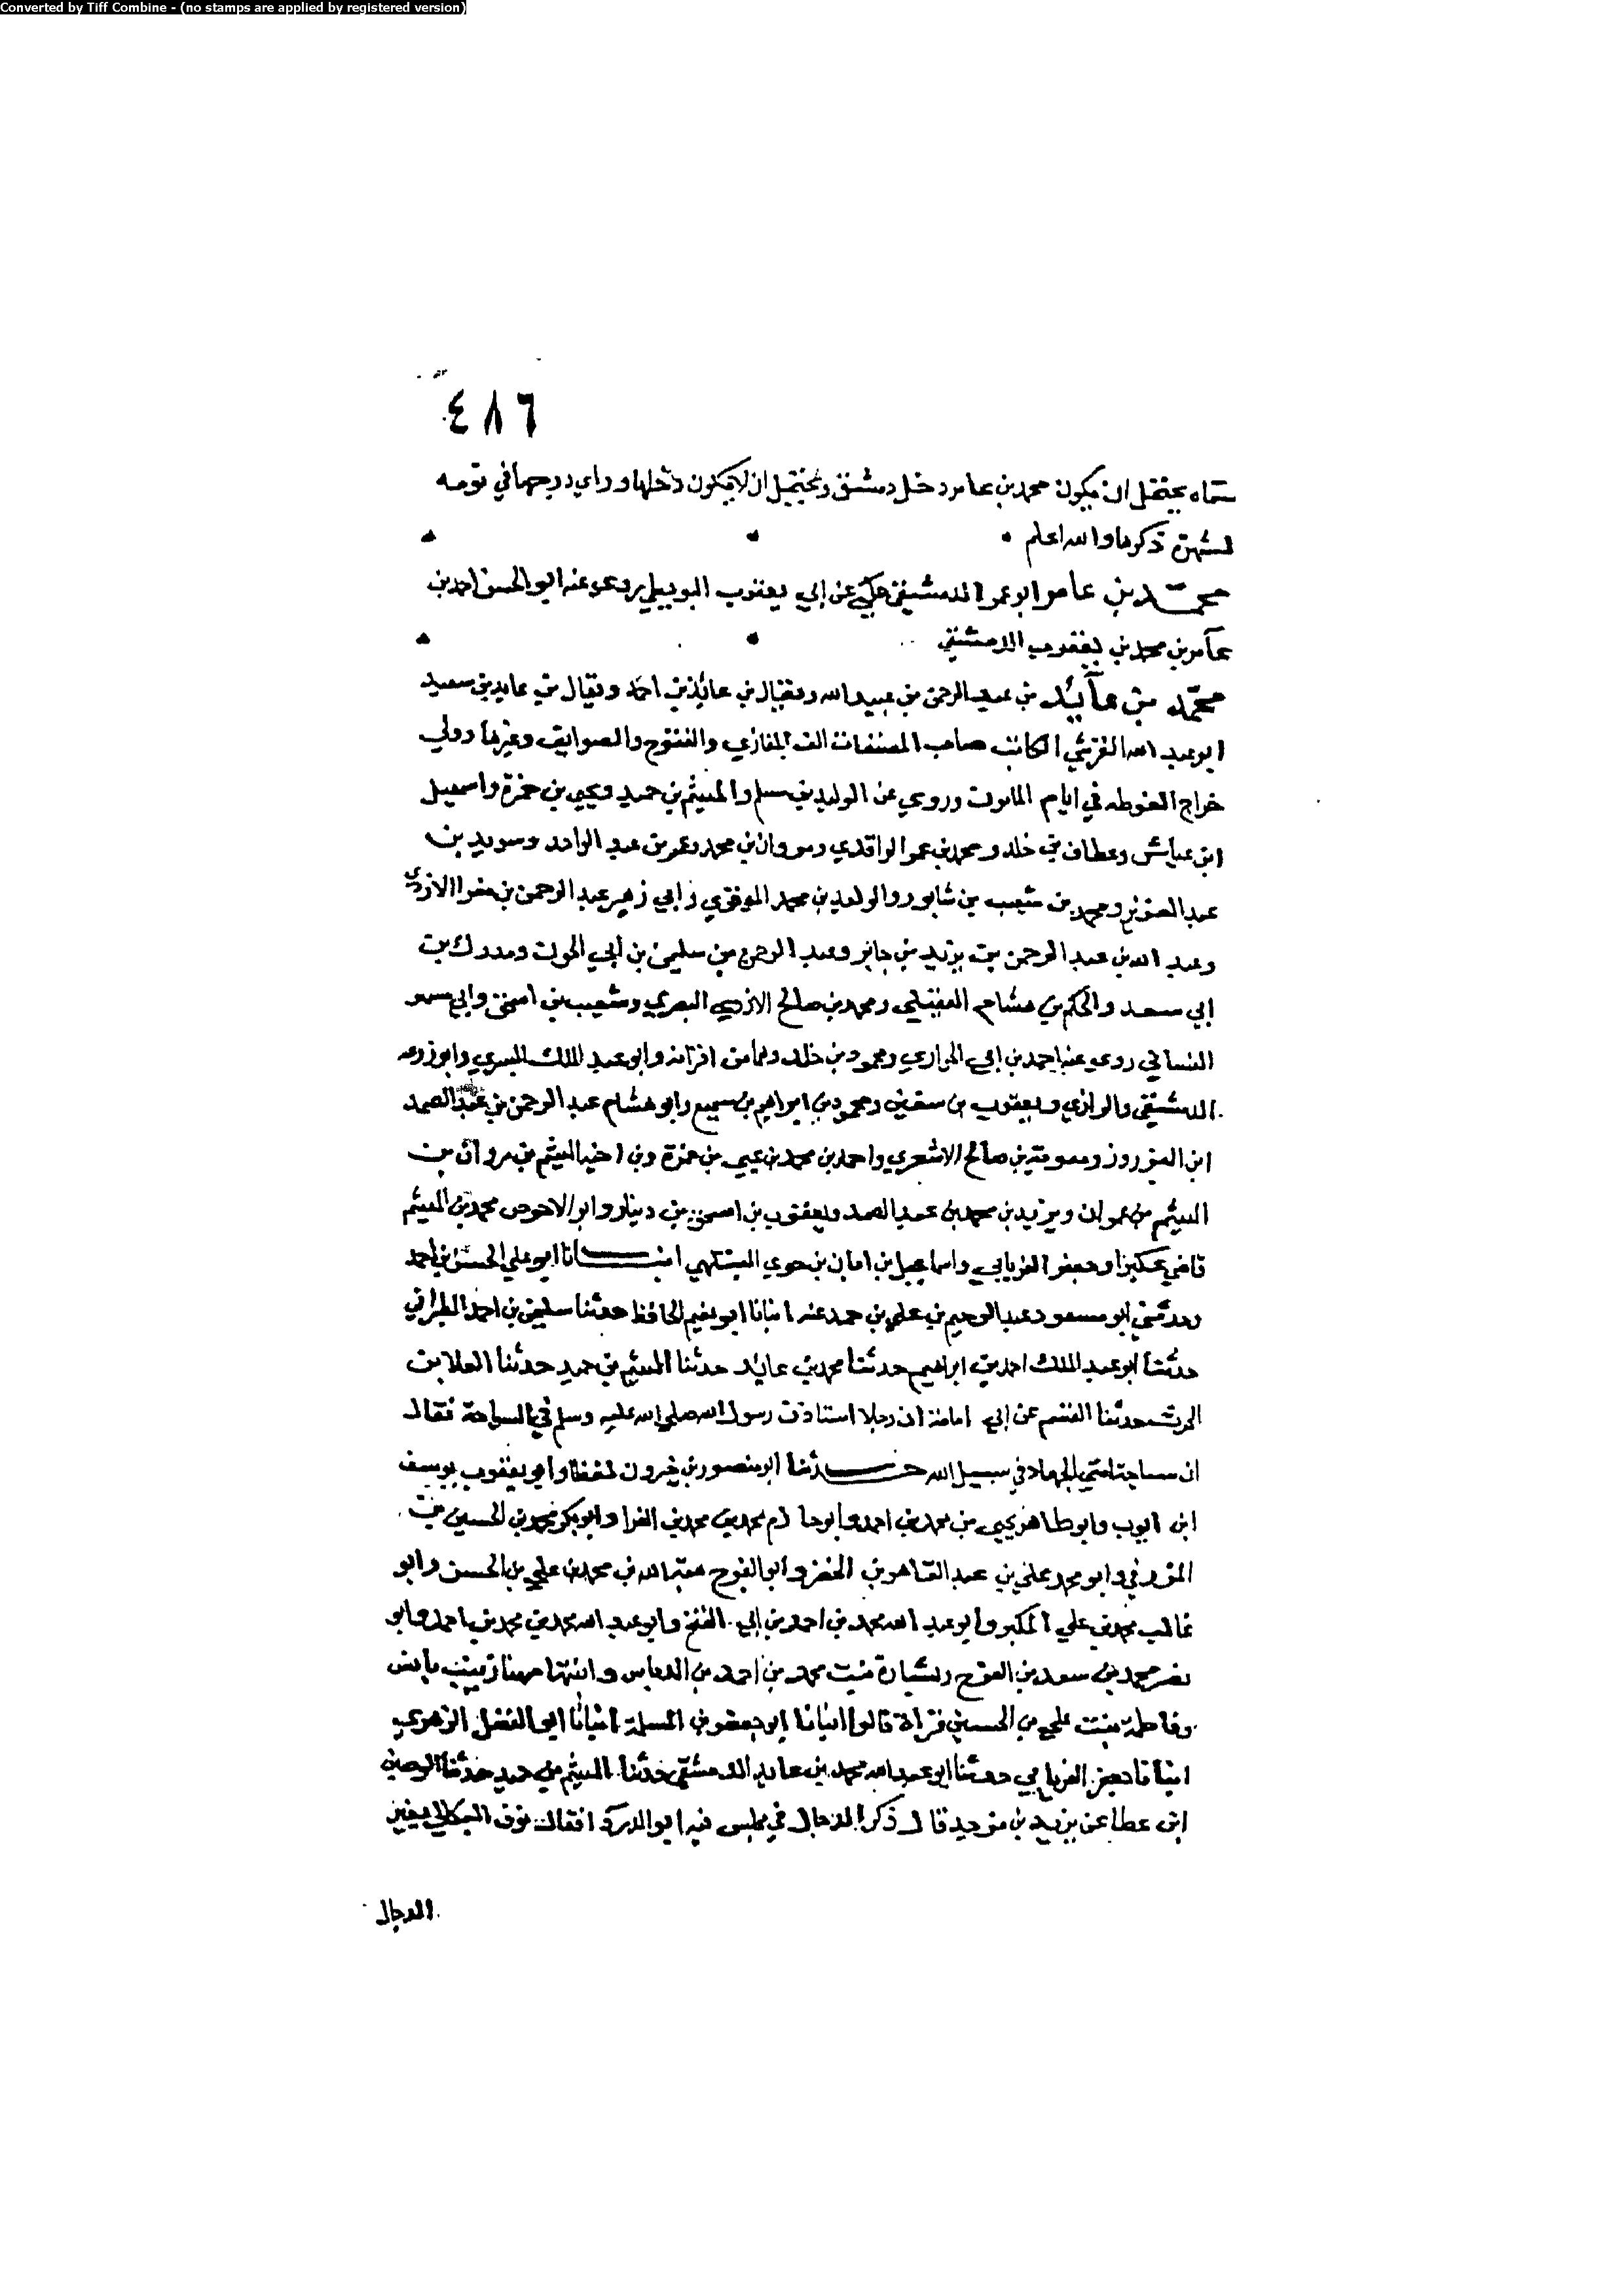 Converted by Tiff Combine - (no stamps are applied by registered version)
٤٨٦
سماه يحتمل ان يكون محمد بن عامر دخل دمشق ويحتمل ان لا يكون دخلها وراي درجها في نومه
لشهرة ذكرها والله اعلم
محمد بن عامر ابو عمر الدمشقي حكى عن ابي يعقوب البويطي روى عنه ابو الحسن احمد بن
عامر بن محمد بن يعقوب الدمشقي
محمد بن عايذ بن عبد الرحمن بن عبيد الله ويقال بن عائذ بن احمد ويقال بن عايد بن سعيد
ابو عبد الله القرشي الكاتب صاحب المصنفات الف المغازي والفتوح والصوايف وغيرها وولي
خراج الغوطه في ايام المامون وروى عن الوليد بن مسلم والهيثم بن حميد ويحيى بن حمزة واسمعيل
ابن عياش وعطاف بن خلد ومحمد بن عمر الواقدي ومروان بن محمد وعمر بن عبد الواحد وسويد بن
عبد العزيز ومحمد بن شعيب بن شابور والوليد بن محمد الموقري وابي زهير عبد الرحمن بن مغرا الازدي
وعبد الله بن عبد الرحمن بن يزيد بن جابر وعبد الرحمن بن سليمن بن ابي الجون ومدرك بن
ابي سعد والحكم بن هشام العقيلي ومحمد بن صالح الازدي البصري وشعيب بن اسحق وابي مسهر
الغساني روى عنه احمد بن ابي الحواري ومحمود بن خلد وهما من اقرانه وابو عبد الملك البسري وابو زرعه
الدمشقي والرازي ويعقوب بن سفين ومحمود بن ابراهيم بن سميع وابو هشام عبد الرحمن بن عبد الصمد
ابن العيزروز ومعوية بن صالح الاشعري واحمد بن محمد بن يحيى بن حمزة وبن اخيه الهيثم بن مروان بن
الهيثم بن عمران ويزيد بن محمد بن عبد الصمد ويعقوب بن اسحق بن دينار وابو الاحوص محمد بن الهيثم
قاضي عكبرا وجعفر الفريابي واسماعيل بن ابان بن حوي السكسكي انبانا ابو علي الحسن بن احمد
وحدثني ابو مسعود عبد الرحيم بن علي بن حمد عنه انبانا ابو نعيم الحافظ حدثنا سليمن بن احمد الطبراني
حدثنا ابو عبد الملك احمد بن ابراهيم حدثنا محمد بن عايد حدثنا الهيثم بن حميد حدثنا العلا بن
الحرث حدثنا القسم عن ابي امامة ان رجلا استاذن رسول الله صلى الله عليه وسلم في السياحة فقال
ان سياحة امتي الجهاد في سبيل الله حدثنا ابو منصور بن خيرون لفظا وابو يعقوب يوسف
ابن ايوب وابو طاهر يحيى بن محمد بن احمد وابو حازم محمد بن محمد بن الفرا وابو بكر محمد بن الحسين بن
المزرفي وابو محمد علي بن عبد القاهر بن الخضر وابو الفرج هبة الله بن محمد بن علي بن الحسن وابو
غالب محمد بن علي المكبر وابو عبد الله محمد بن احمد بن ابي الفتح وابو عبد الله محمد بن محمد بن احمد وابو
نصر محمد بن سعد بن الفرج وبشارة بنت محمد بن احمد بن الدباس وابنتها مهناز
وفاطمة بنت علي بن الحسين قراة قالوا انبانا ابو جعفر بن المسلمة انبانا ابو الفضل الزهري
انبانا جعفر الفريابي حدثنا ابو عبد الله محمد بن عايد الدمشقي حدثنا الهيثم بن حميد حدثنا الوضين
ابن عطا عن يزيد بن مزيد قال ذكر الدجال في مجلس فيه ابو الدرداء فقال نوف البكالي لغير
الدجال